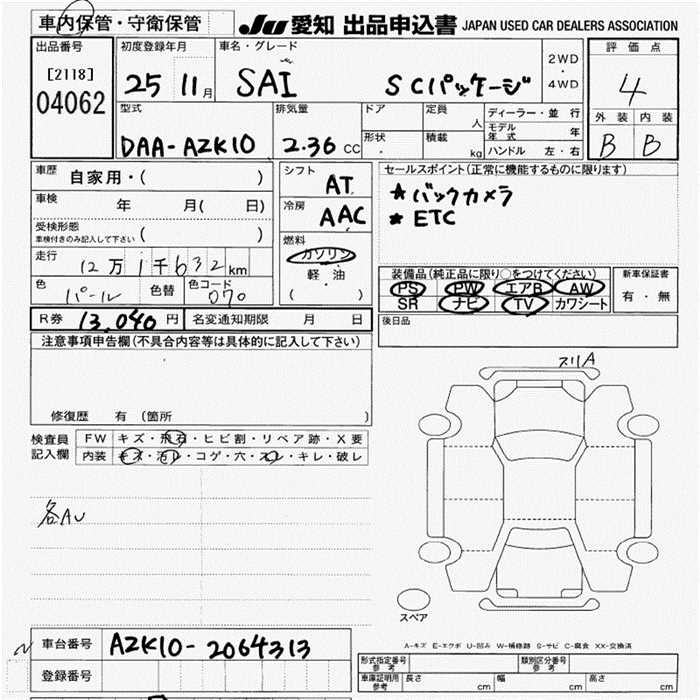 車内保管・守衛保管
JU 愛知 出品申込書 JAPAN USED CAR DEALERS ASSOCIATION
出品番号
[2118]
04062
初度登録年月
25 11月
車名・グレード
SAI SCパッケージ
2WD
・
4WD
評価点
4
外装 内装
B B
型式
DAA-AZK10
排気量
2.36 CC
ドア
形状
定員
人
積載
kg
ディーラー・並行
モデル年式 年
ハンドル 左・右
車歴 自家用・( )
車検 年 月( 日)
受検形態
車検付きのみ記入して下さい ( )
走行 12万1千632km
色 パール 色替 色コード 070
シフト AT
冷房 AAC
燃料
ガソリン
軽油
( )
セールスポイント(正常に機能するものに限ります)
★バックカメラ
★ETC
装備品(純正品に限り○をつけてください)
PS PW エアB AW
SR ナビ TV カワシート
新車保証書
有・無
R券 13,040円 名変通知期限 月 日
後日品
注意事項申告欄(不具合内容等は具体的に記入して下さい)
修復歴 有(箇所 )
検査員記入欄
FW キズ・飛石・ヒビ割・リペア跡・X要
内装 キズ・汚レ・コゲ・穴・スレ・キレ・破レ
各AU
スリA
スペア
A-キズ E-エクボ U-凹み W-補修跡 S-サビ C-腐食 XX-交換済
車台番号 AZK10-2064313
登録番号
形式指定番号 参考
類別区分番号 参考
車庫証明用 参考 長さ cm 幅 cm 高さ cm